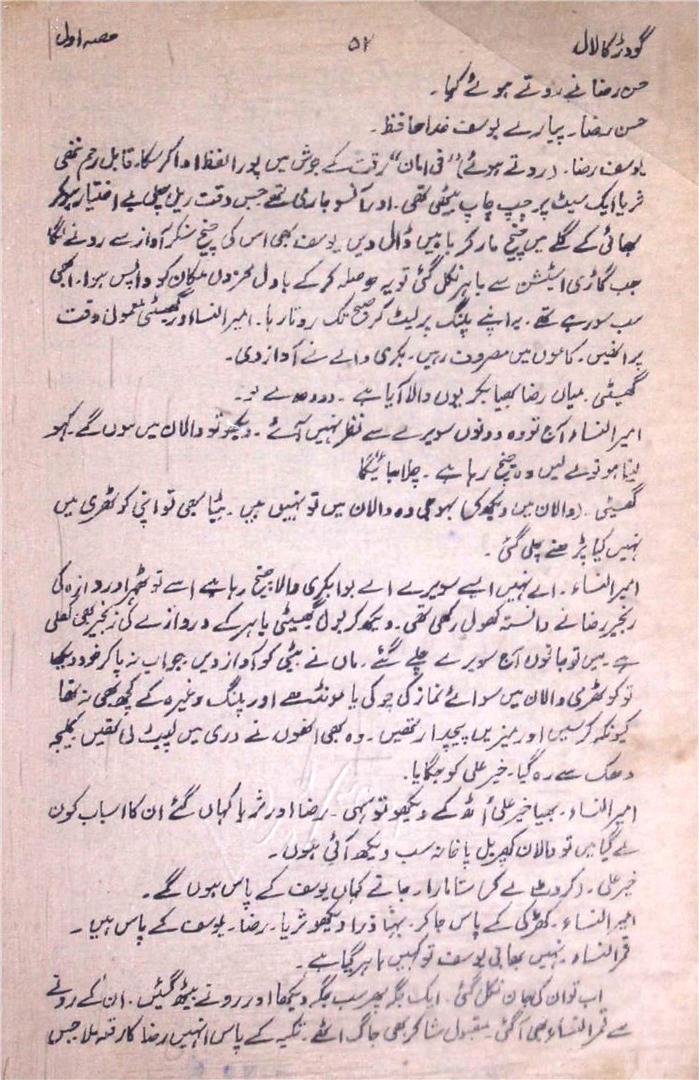 گودڑ کا لال ۵۲ حصہ اول
حسن رضا نے روتے ہوئے کہا۔
حسن رضا۔ پیارے یوسف خدا حافظ۔
یوسف رضا۔ (روتے ہوئے) "فی امان" رقت کے جوش میں پورا لفظ ادا نہ کرسکا۔ قابل رحم ننھی
ثریا ایک سیٹ پر چپ چاپ بیٹھی تھی۔ اور آنسو جاری تھے جس وقت ریل چلی بے اختیار ہوکر
بھائی کے گلے میں چیخ مار کر باہیں ڈال دیں یوسف بھی اس کی چیخ سنکر آواز سے رونے لگا
جب گاڑی اسٹیشن سے باہر نکل گئی تو یہ حوصلہ کرکے بادل محزوں مکان کو واپس ہوا۔ ابھی
سب سو رہے تھے۔ یہ اپنے پلنگ پر لیٹ کر صبح تک روتا رہا۔ امیر النساء اور گھسیٹی معمولی وقت
پر اٹھیں۔ کاموں میں مصروف رہیں۔ بکری والے نے آواز دی۔
گھسیٹی۔ میاں رضا بھیا بکریوں والا آیا ہے۔ دودھ لے لو۔
امیر النساء آج تو وہ دونوں سویرے سے نظر نہیں آئے۔ دیکھو تو دالان میں ہوں گے۔ کہو
لینا ہو تو لے لیں وہ چیخ رہا ہے۔ چلا جائیگا
گھسیٹی۔ (دالان میں دیکھ کر) بہو جی وہ دالان میں تو نہیں ہیں۔ بٹیا بھی تو اپنی کوٹھری میں
نہیں کیا پڑھنے چلی گئی۔
امیر النساء۔ اے نہیں ایسے سویرے اے بوا بکری والا چیخ رہا ہے اسے تو ٹھہرا دروازہ کی
زنجیر رضا نے دانستہ کھول رکھی تھی۔ دیکھ کر بولی گھسیٹی باہر کے دروازے کی زنجیر بھی کھلی
ہے۔ میں تو جانوں آج سویرے چلے گئے۔ ماں نے بیٹی کو آواز دیں جواب نہ پاکر خود دیکھا
تو کوٹھری دالان میں سوائے نماز کی چوکی یا مونڈھے اور پلنگ وغیرہ کے کچھ بھی نہ تھا
کیونکہ کرسیں اور میزیں پیچدار تھیں۔ وہ بھی انھوں نے دری میں لپیٹ لی تھیں کلیجہ
دھک سے رہ گیا۔ خیر علی کو جگایا۔
امیر النساء۔ بھیا خیر علی اُٹھ کے دیکھو تو سہی۔ رضا اور ثریا کہاں گئے ان کا اسباب کون
لے گیا میں تو دالان کھپریل پاخانہ سب دیکھ آئی ہوں۔
خیر علی۔ (کروٹ لے کر) جاتے کہاں یوسف کے پاس ہوں گے۔
امیر النساء۔ کھڑکی کے پاس جا کر۔ بہنا ذرا دیکھو ثریا۔ رضا۔ یوسف کے پاس ہیں۔
قمر النساء۔ نہیں بھابی یوسف تو کہیں باہر گیا ہے۔
اب تو ان کی جان نکل گئی۔ ایک جگہ پھر سب جگہ دیکھا اور رونے بیٹھ گئیں۔ ان کے رونے
سے قمر النساء بھی آگئی۔ مقبول شاکر بھی جاگ اٹھے۔ تکیہ کے پاس انہیں رضا کا رقعہ ملا جس